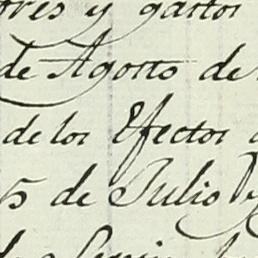 y gastos
de Agosto de
de los Efectos
5 de Julio y